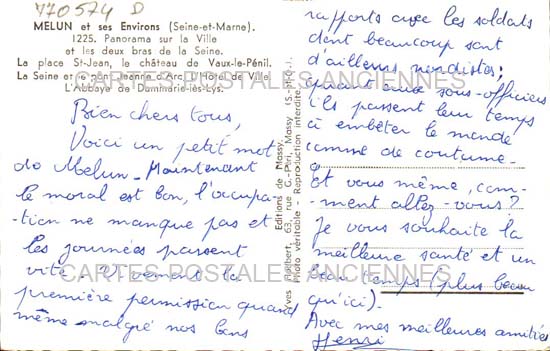 770574 D
MELUN et ses Environs (Seine-et-Marne).
1225. Panorama sur la Ville
et les deux bras de la Seine.
La place St-Jean, le château de Vaux-le-Pénil.
La Seine et le pont Jeanne d'Arc, l'Hôtel de Ville.
L'Abbaye de Dammarie-lès-Lys.
Bien chers tous,
Voici un petit mot
de Melun. Maintenant
le moral est bon, l'occupa-
-tion ne manque pas et
les journées passent
vite. Vivement la
première permission quand
même malgré nos bons
Editions de Massy.
Yves Philbert, 63, rue G.-Péri, Massy (S.-et-O.).
Photo véritable - Reproduction interdite.
rapports avec les soldats
dont beaucoup sont
d'ailleurs nordistes;
quant aux sous-officiers
ils passent leur temps
à embêter le monde
comme de coutume.
Et vous même, com-
-ment allez-vous?
Je vous souhaite la
meilleure santé et un
beau temps (plus beau
qu'ici).
Avec mes meilleures amitiés
Henri
CARTES POSTALES ANCIENNES
CARTES POSTALES ANCIENNES